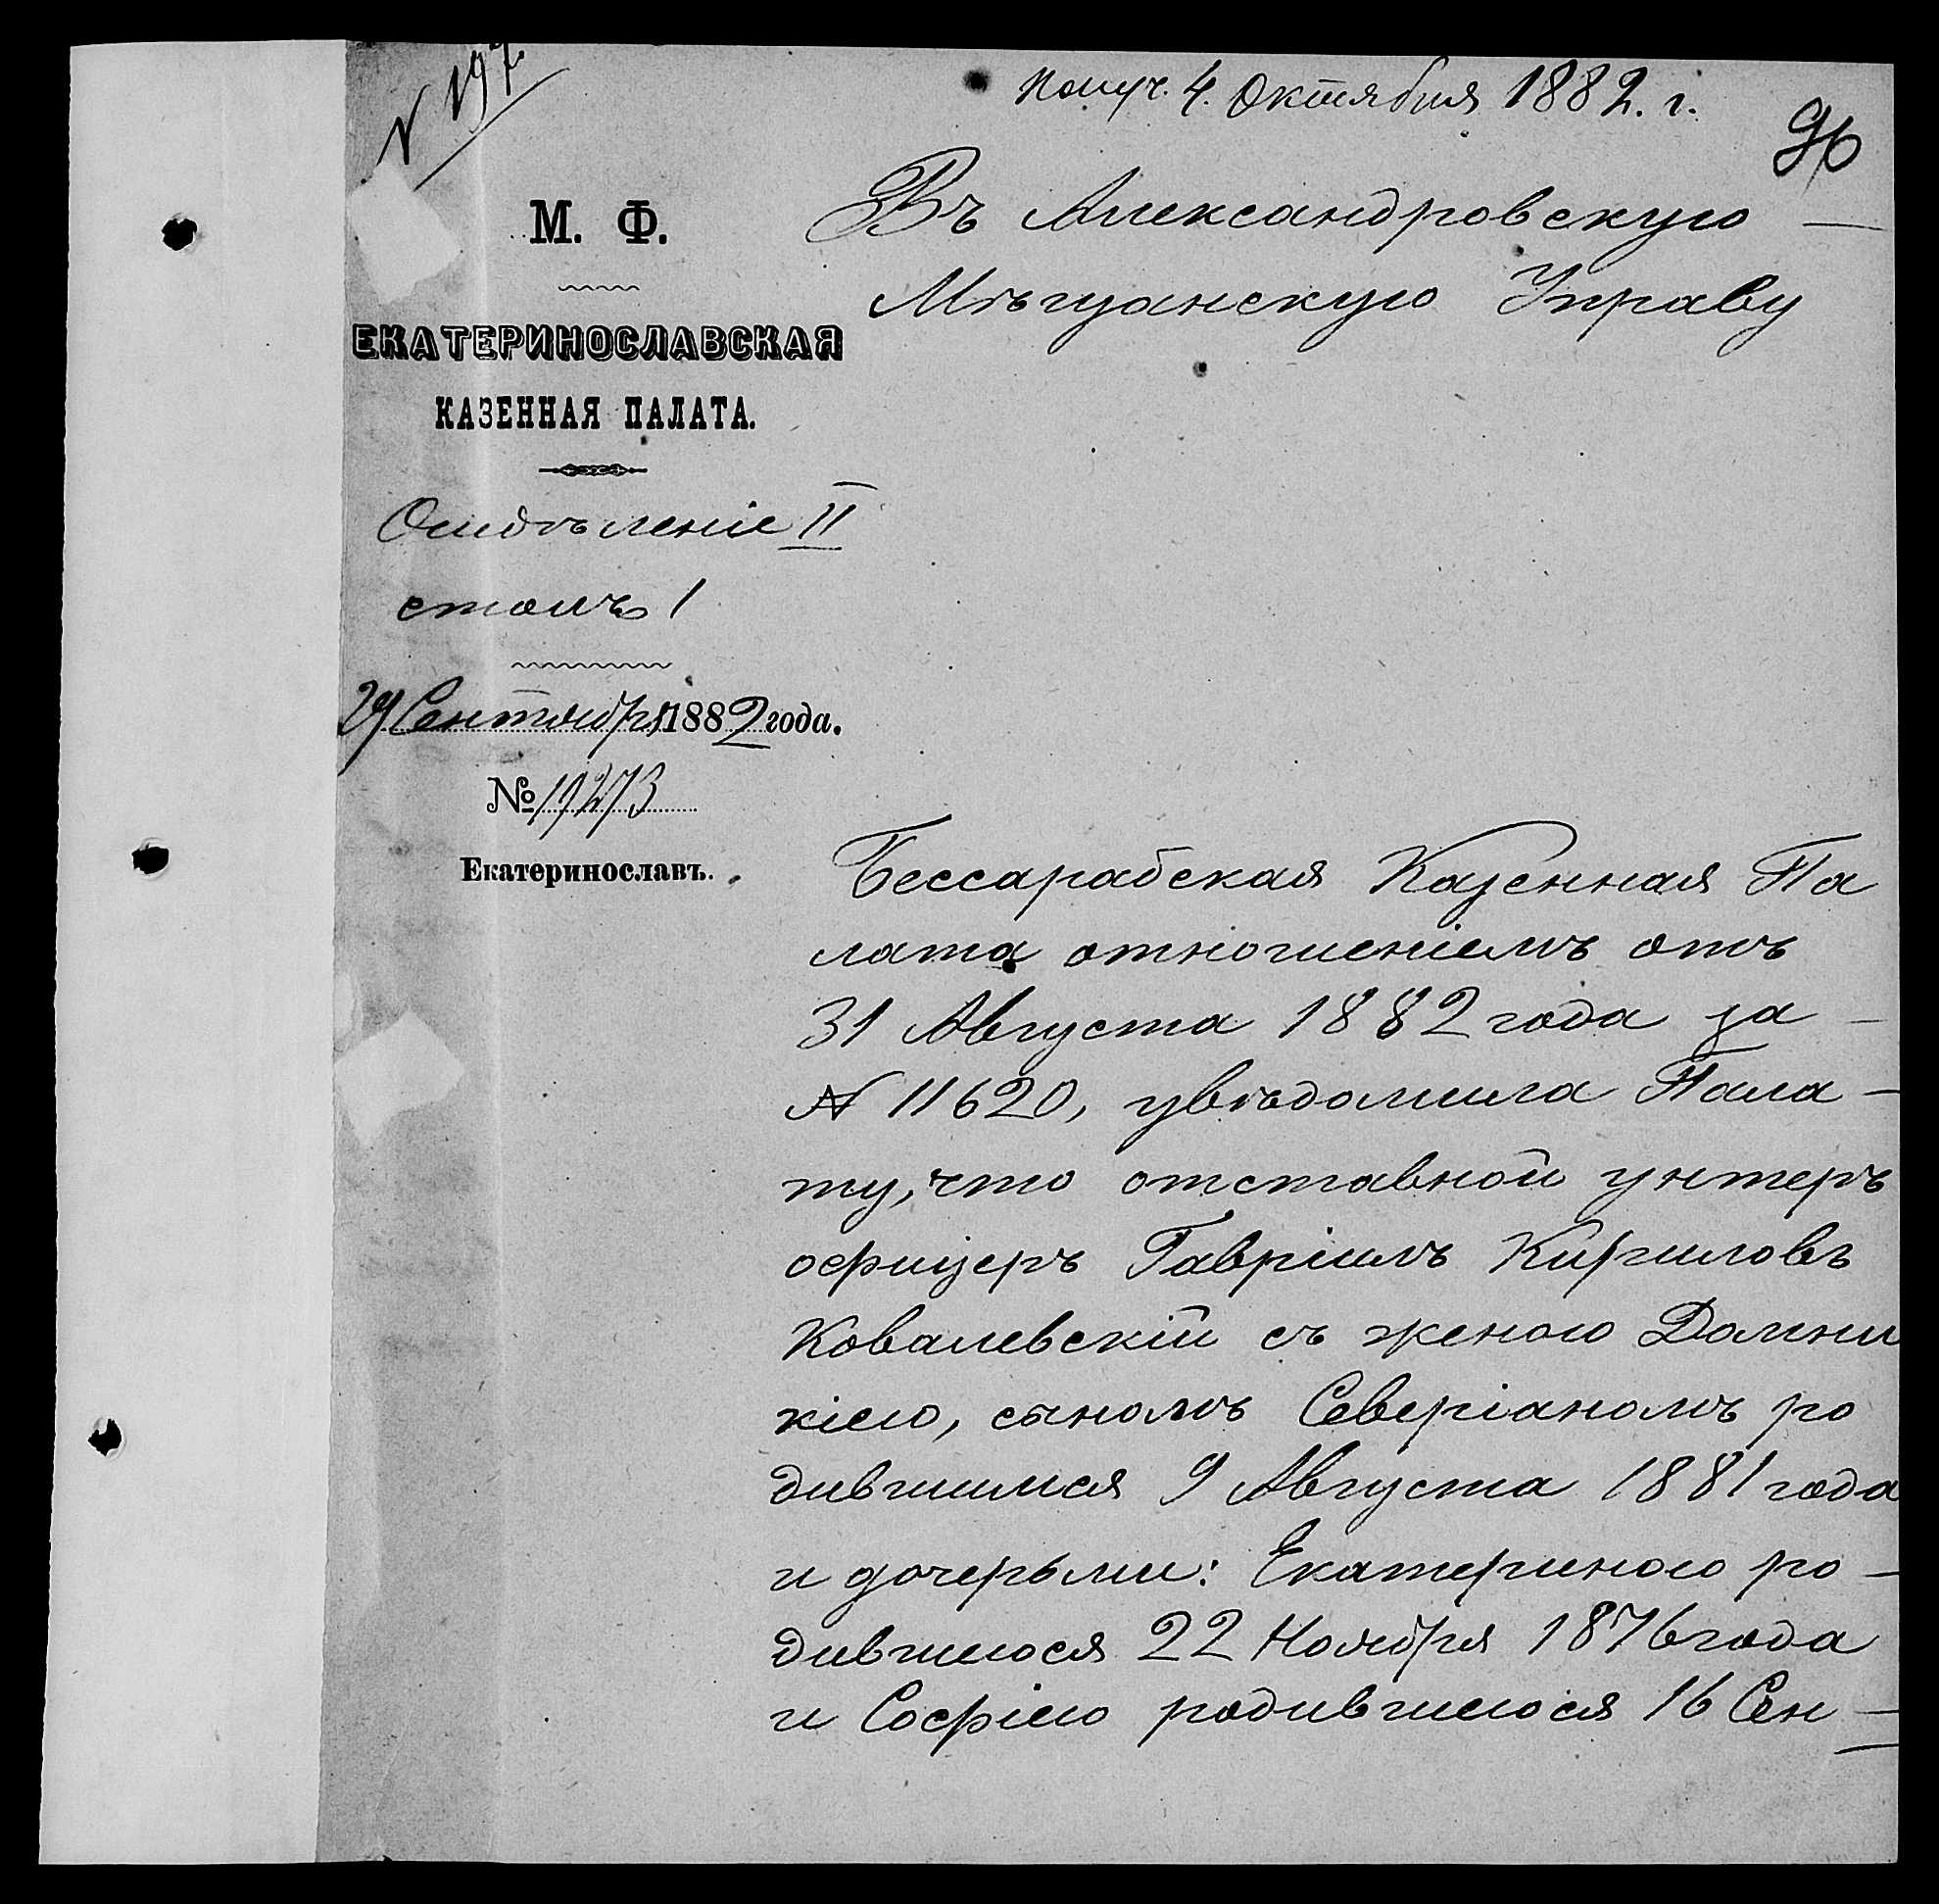 N 197.
Получ. 4. Октября 1882. г.
96
М. Ф.
ЕКАТЕРИНОСЛАВСКАЯ
КАЗЕННАЯ ПАЛАТА.
Отдѣленіе II
столъ 1
29 Сентября 1882 года.
№ 19273
Екатеринославъ.
Въ Александровскую —
Мѣщанскую Управу
Бессарабская Казенная Па
лата отношеніемъ отъ
31 Августа 1882 года за —
N 11620, увѣдомила Пала —
ту, что отставной унтеръ
офицеръ Гавріилъ Кириловъ
Ковалевскій съ женою Домни
кіею, сыномъ Северіаномъ ро
дившимся 9 Августа 1881 года
и дочерьми: Екатериною ро —
дившеюся 22 Ноября 1876 года
и Софіею родившеюся 16 Сен —